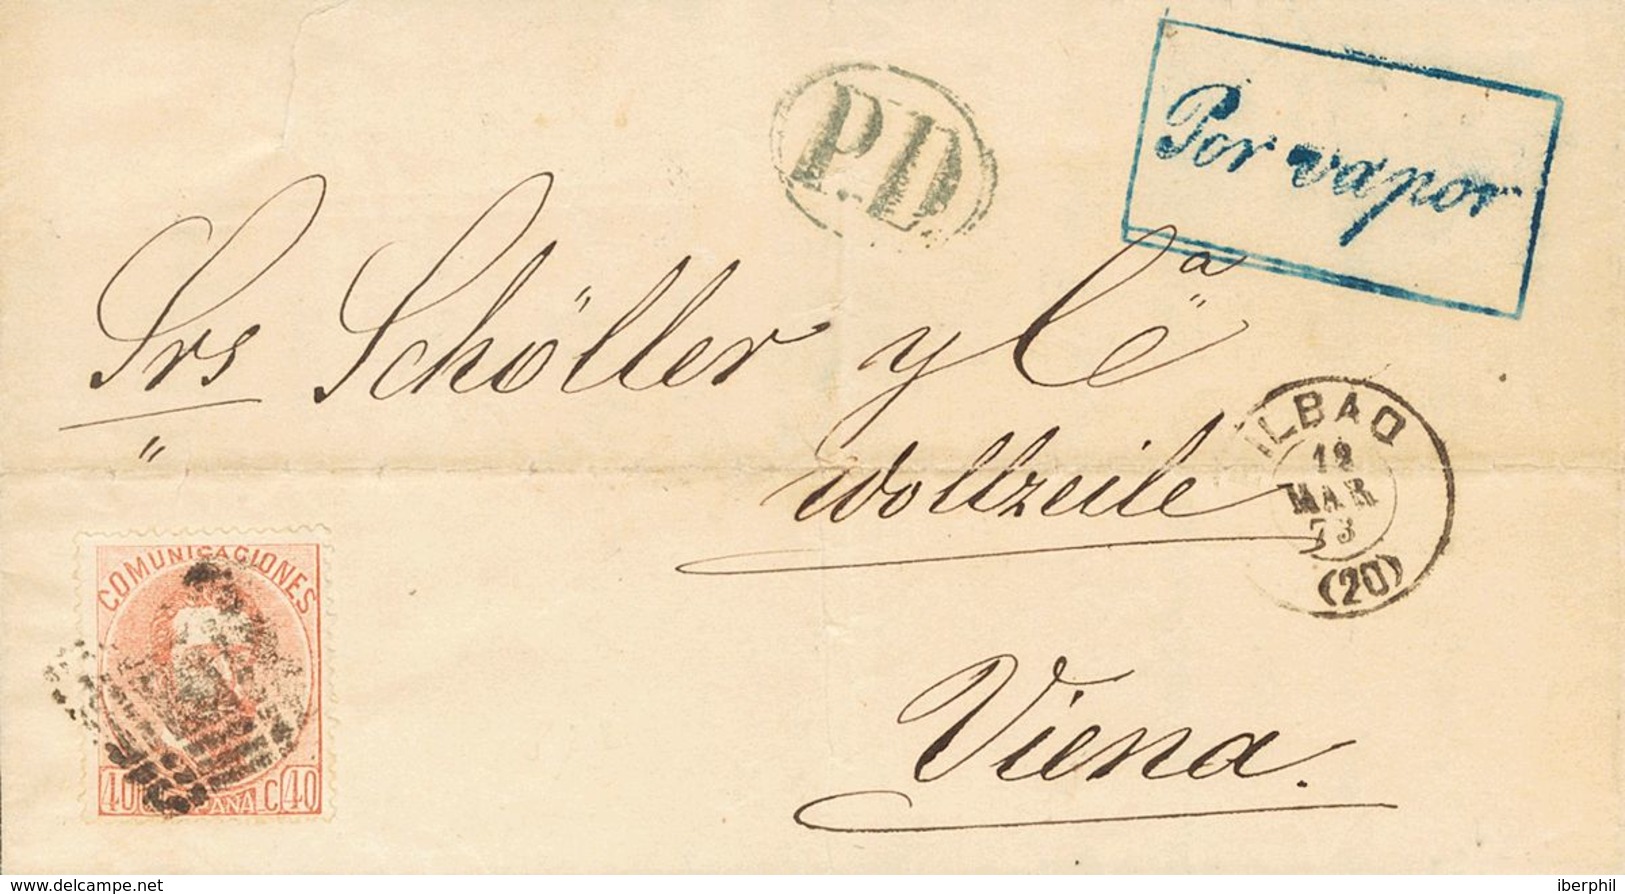 P.D
Por vapor
Srs Schöller y Cª
Wollzeile
BILBAO
12
MAR
73
(20)
COMUNICACIONES
40 C.ˢ ESPAÑA C.ˢ 40
Viena.
www.delcampe.net
iberphil